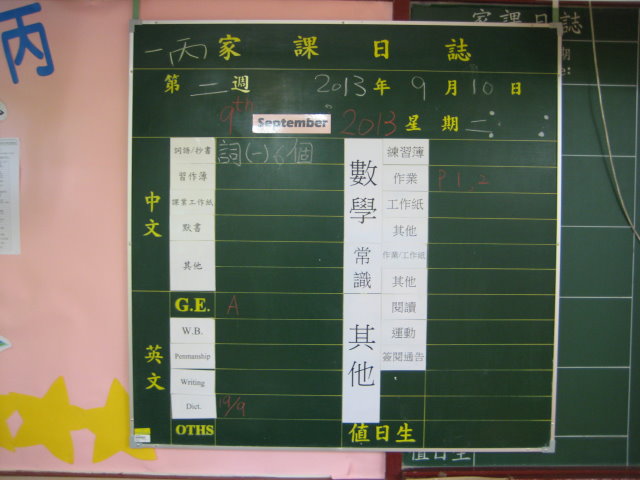 丙
一丙 家課日誌
第二週 2013年9月10日
9th September 2013 星期二
中文
詞語/抄書 詞(一)6個
習作簿
課業工作紙
默書
其他
英文
G.E. A
W.B.
Penmanship
Writing
Dict. 19/9
OTHS
數學
練習簿
作業 P1,2
工作紙
其他
常識
作業/工作紙
其他
其他
閱讀
運動
簽閱通告
值日生
家課日誌
期
te:
值日生